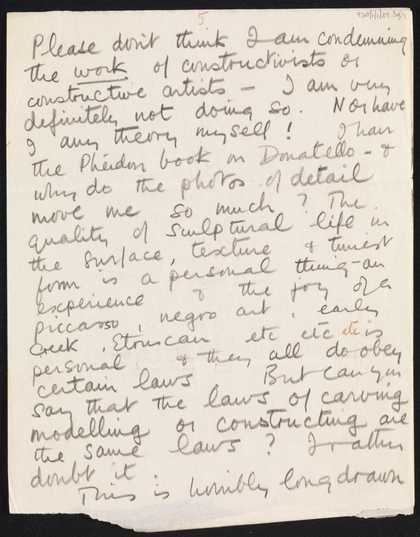 5
Please don't think I am condemning
the work of constructivists or
constructive artists – I am very
definitely not doing so. Nor have
I any theory myself! I have
the Phéidon book on Donatello – &
why do the photos of detail
move me so much? The
quality of sculptural life in
the surface, texture & tiniest
form is a personal thing – an
experience & the joy of a
Piccasso, negro art, early
Greek, Etruscan etc etc etc is
personal & they all do obey
certain laws But can you
say that the laws of carving
modelling or constructing are
the same laws? I rather
doubt it.
This is horribly long drawn